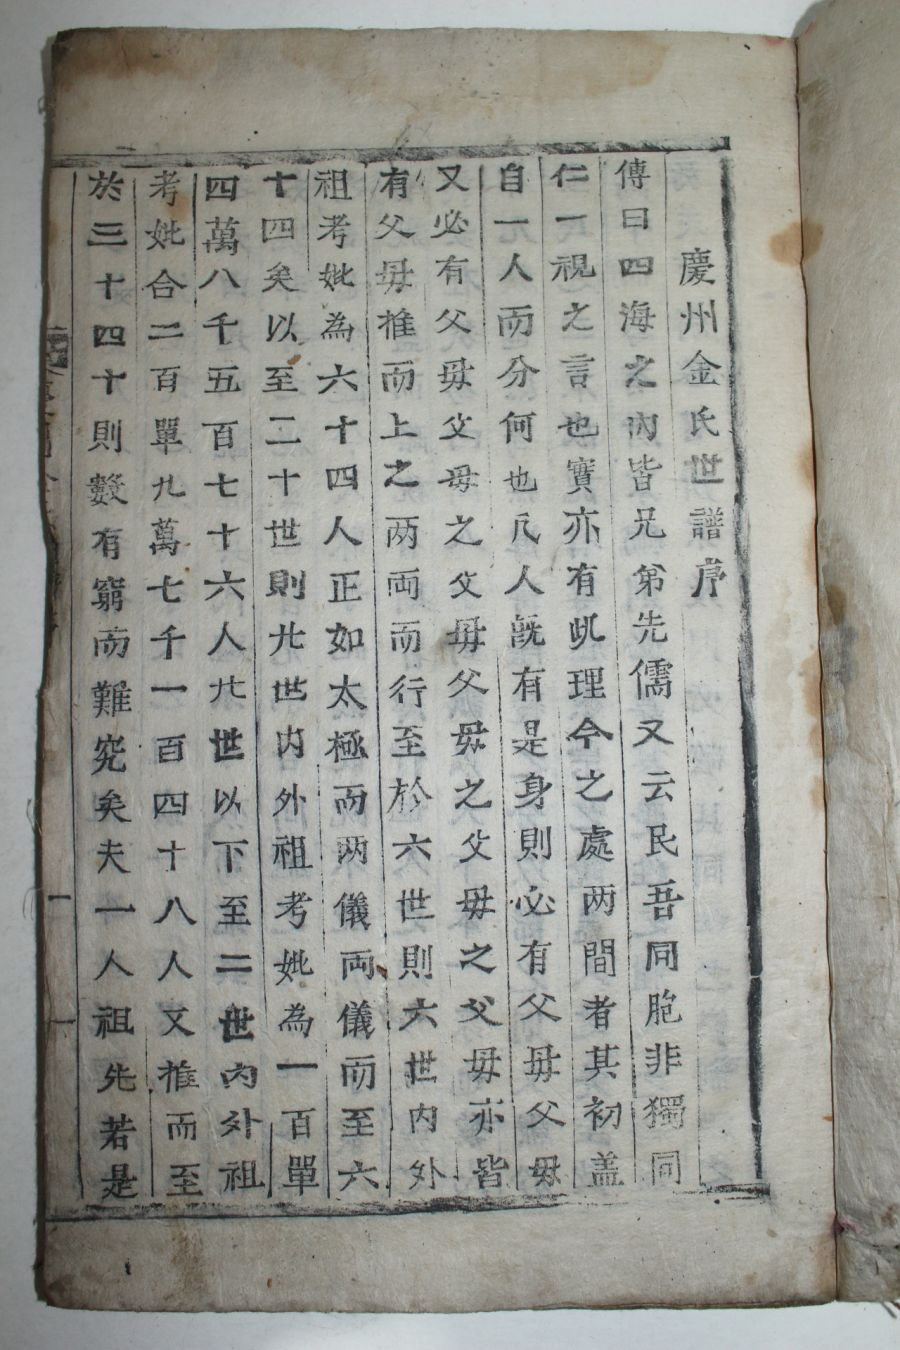 慶州金氏世譜序
傳曰四海之內皆兄弟先儒又云民吾同胞非獨同
仁一視之言也實亦有此理今之處两間者其初盖
自一人而分何也凡人旣有是身則必有父母父母
又必有父母父母之父母父母之父母之父母亦皆
有父母推而上之两両而行至於六世則六世內外
祖考妣為六十四人正如太極而两儀両儀而至六
十四矣以至二十世則卄世內外祖考妣為一百單
四萬八千五百七十六人卄世以下至二世內外祖
考妣合二百單九萬七千一百四十八人又推而至
於三十四十則數有窮而難究矣夫一人祖先若是